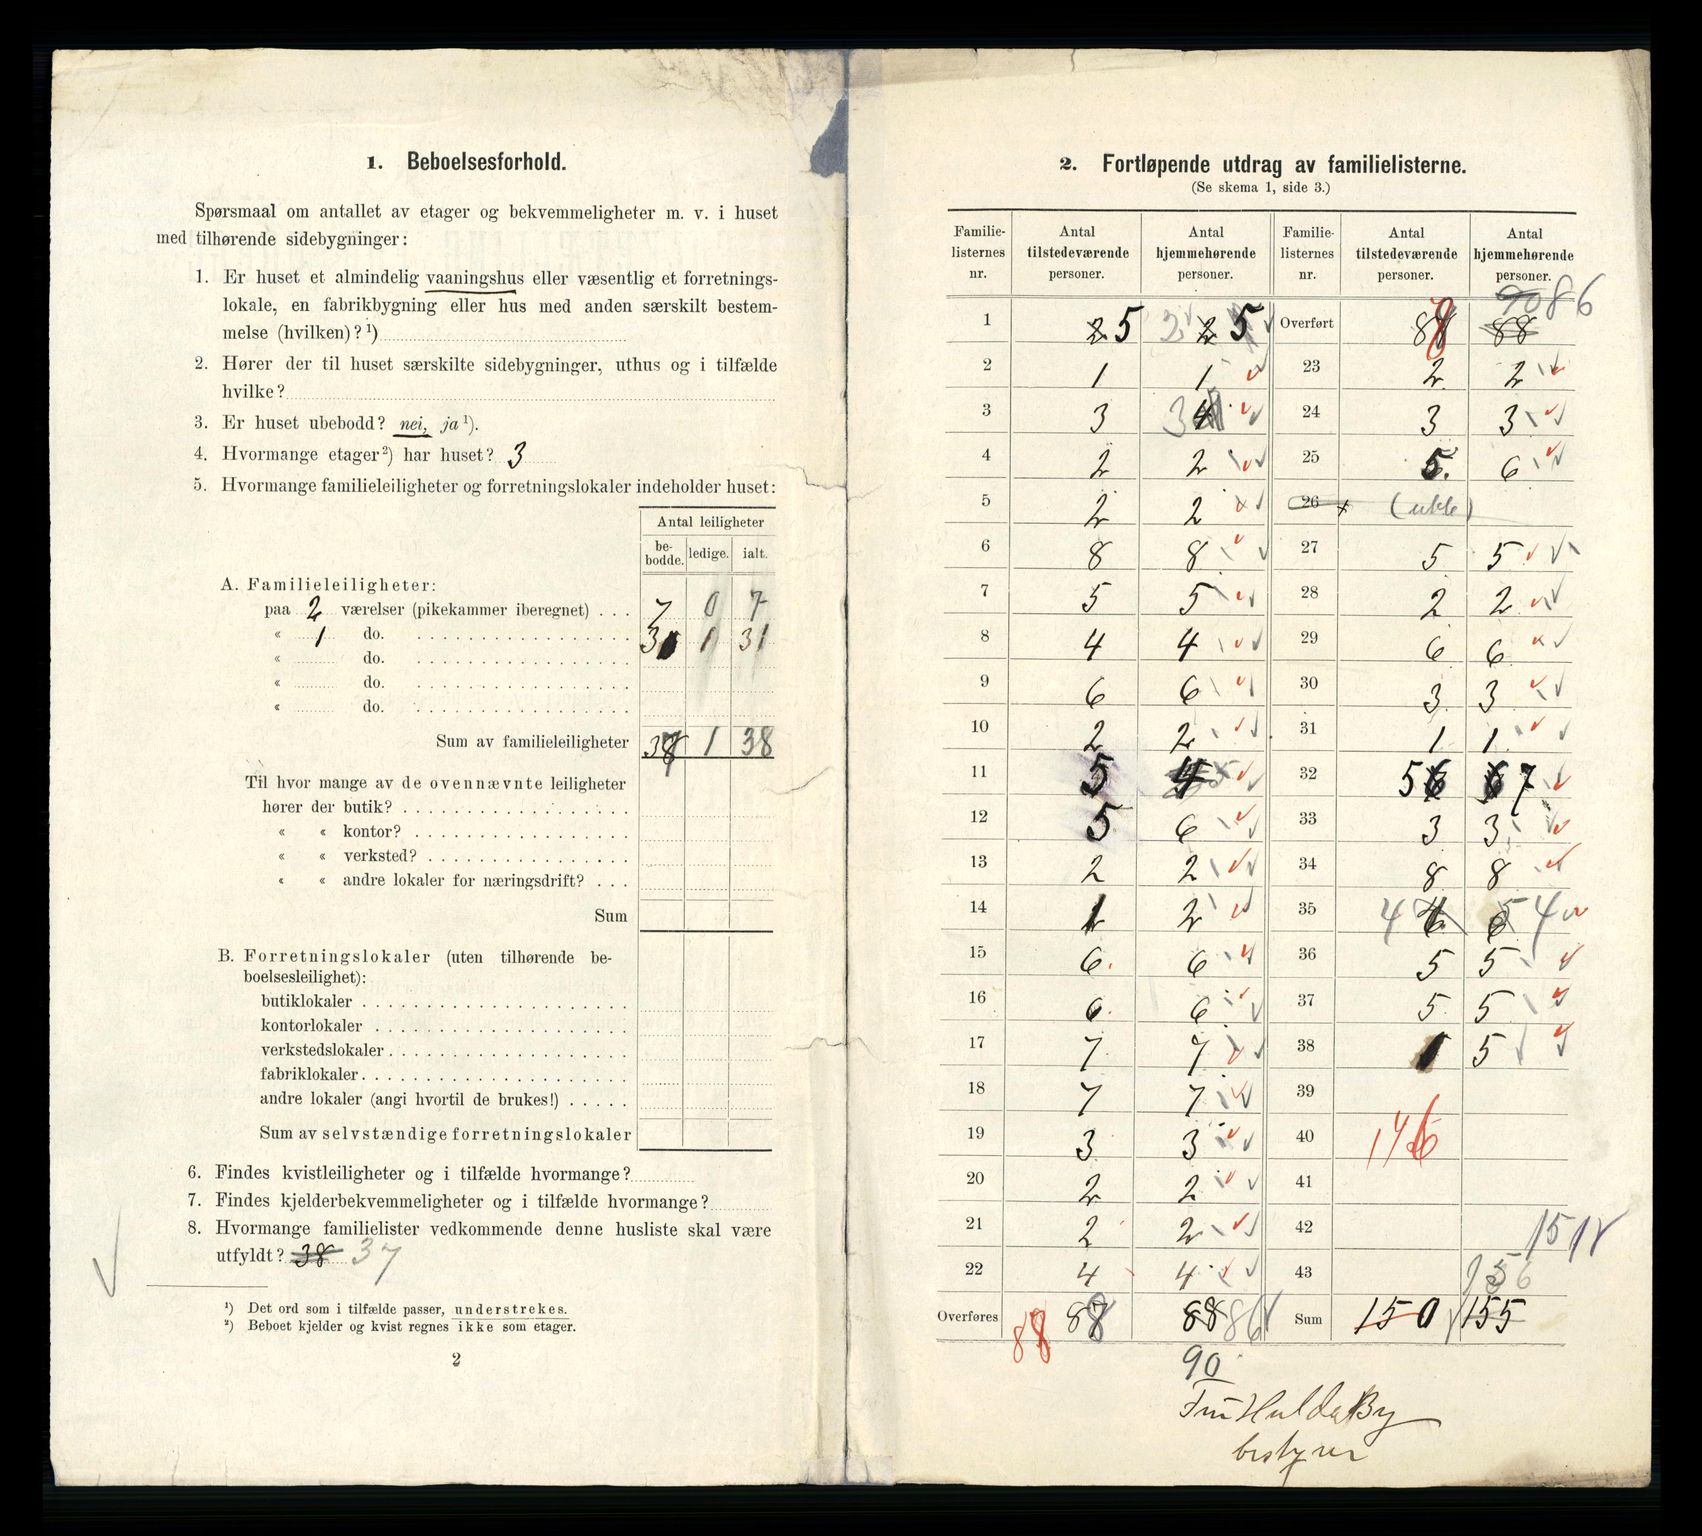 1. Beboelsesforhold.
Spørsmaal om antallet av etager og bekvemmeligheter m. v. i huset
med tilhørende sidebygninger:
1. Er huset et almindelig vaaningshus eller væsentlig et forretnings-
lokale, en fabrikbygning eller hus med anden særskilt bestem-
melse (hvilken)? ¹)
2. Hører der til huset særskilte sidebygninger, uthus og i tilfælde
hvilke?
3. Er huset ubebodd? nei, ja ¹).
4. Hvormange etager ²) har huset? 3
5. Hvormange familieleiligheter og forretningslokaler indeholder huset:
Antal leiligheter
be-
bodde. ledige. ialt.
A. Familieleiligheter:
paa 2 værelser (pikekammer iberegnet) . . . 7 0 7
« 1 do. 1 31
« do.
« do.
« do.
Sum av familieleiligheter 1 38
Til hvor mange av de ovennævnte leiligheter
hører der butik?
« « kontor?
« « verksted?
« « andre lokaler for næringsdrift? . . .
Sum
B. Forretningslokaler (uten tilhørende be-
boelsesleilighet):
butiklokaler
kontorlokaler
verkstedslokaler
fabriklokaler
andre lokaler (angi hvortil de brukes!)
Sum av selvstændige forretningslokaler
6. Findes kvistleiligheter og i tilfælde hvormange?
7. Findes kjelderbekvemmeligheter og i tilfælde hvormange?
8. Hvormange familielister vedkommende denne husliste skal være
utfyldt? 38 37
¹) Det ord som i tilfælde passer, understrekes.
²) Beboet kjelder og kvist regnes ikke som etager.
2
2. Fortløpende utdrag av familielisterne.
(Se skema 1, side 3.)
Familie-
listernes
nr.
Antal
tilstedeværende
personer.
Antal
hjemmehørende
personer.
Familie-
listernes
nr.
Antal
tilstedeværende
personer.
Antal
hjemmehørende
personer.
90 86
1 2 5 2 2 5 Overført 88
2 1 1 23 2 2
3 3 3 24 3 3
4 2 2 25 5. 6
5 2 2 26 (ikke)
6 8 8 27 5 5
7 5 5 28 2 2
8 4 4 29 6 6
9 6 6 30 3 3
10 2 2 31 1 1
11 5 4 5 32 5 6 6 7
12 5 6 33 3 3
13 2 2 34 8 8
14 1 2 35 4 4
15 6 6 36 5 5
16 6 6 37 5 5
17 7 7 38 1 5
18 7 7 39
19 3 3 40 146
20 2 2 41
21 2 2 42 151
22 4 4 43 156
Overføres 88 86 Sum 150 155
90
Hulda By
bestyrer